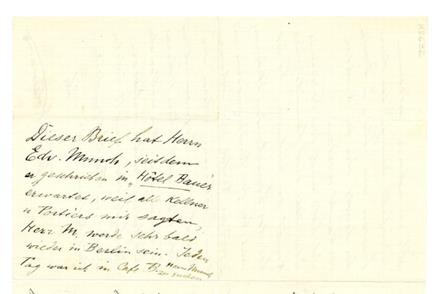 Dieser Brief hat Herrn
Edv. Munch, seitdem
er geschrieben in „Hôtel Bauer
erwartet, weil alle Kellner
u Portiers mir sagten,
Herr M. werde sehr bald
wieder in Berlin sein. Jeden
Tag war ich in Café B. Herrn Munch
zu suchen